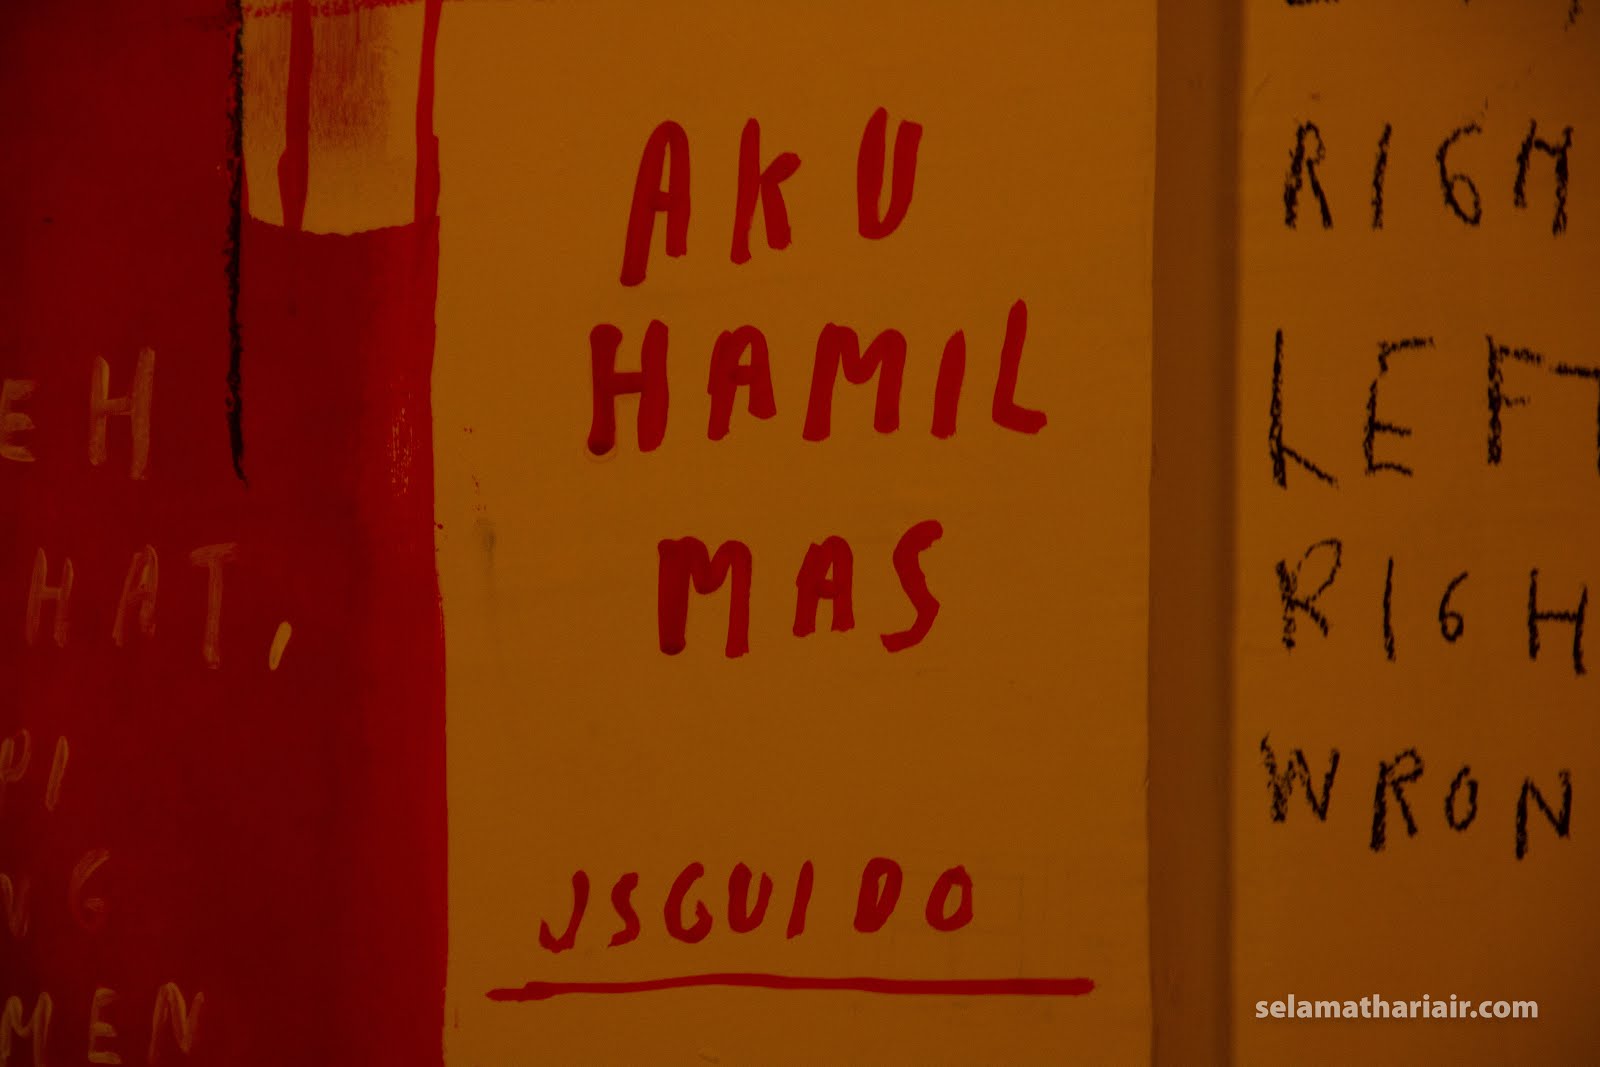 AKU
HAMIL
MAS
JSGUIDO
HAT,
RIGH
LEFT
RIGH
WRON
EH
PI
NG
MEN
selamathariair.com